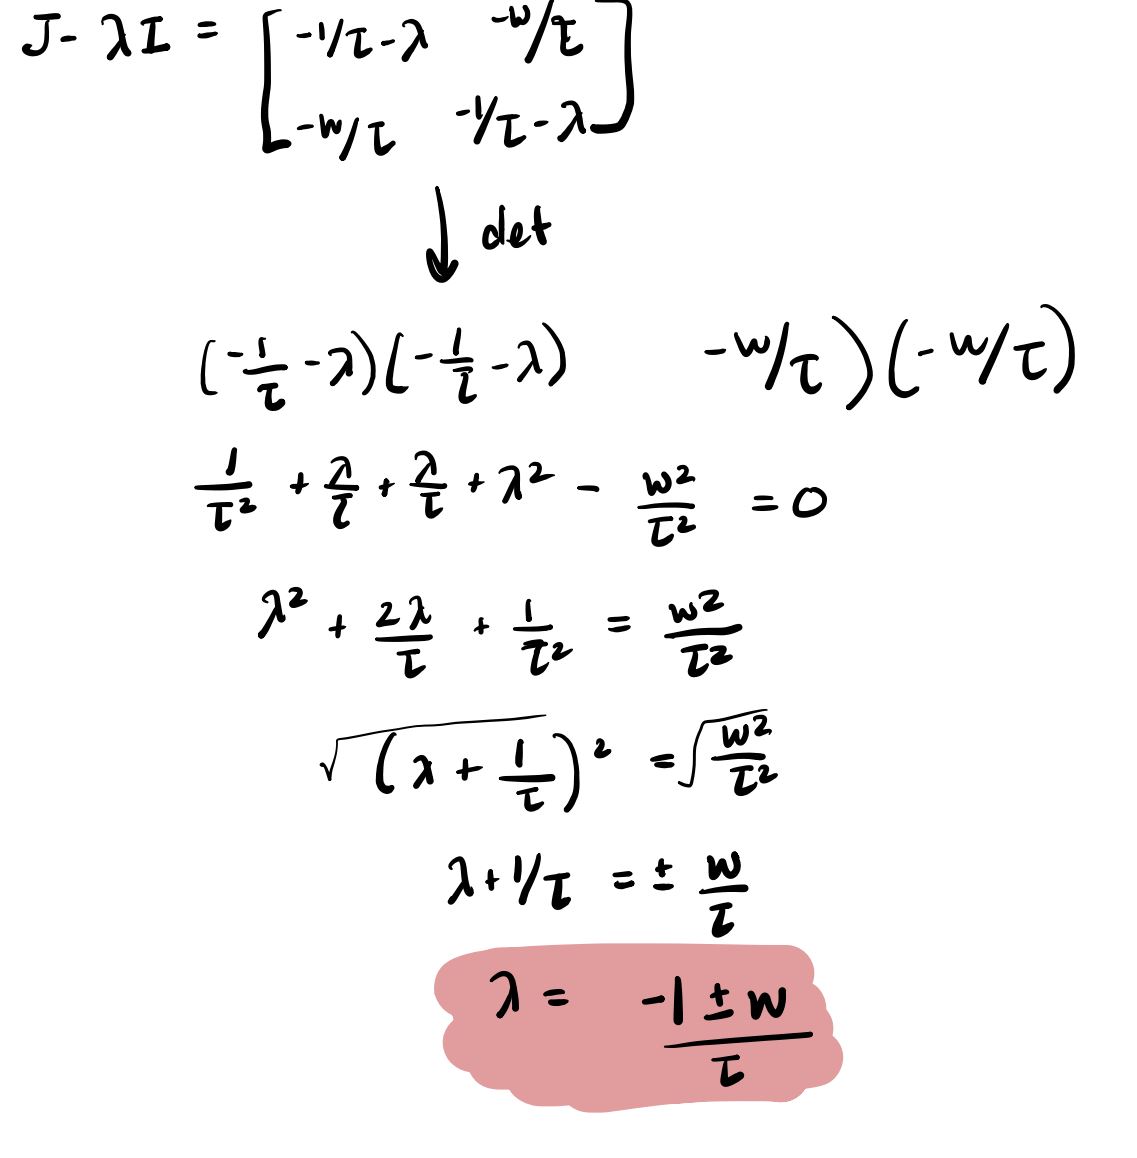 J - λI = [ -1/τ - λ   -w/τ
-w/τ   -1/τ - λ ]
↓ det
(-1/τ - λ)(-1/τ - λ)   -w/τ)(-w/τ)
1/τ² + λ/τ + λ/τ + λ² - w²/τ² = 0
λ² + 2λ/τ + 1/τ² = w²/τ²
√(λ + 1/τ)² = √w²/τ²
λ + 1/τ = ± w/τ
λ = -1 ± w / τ